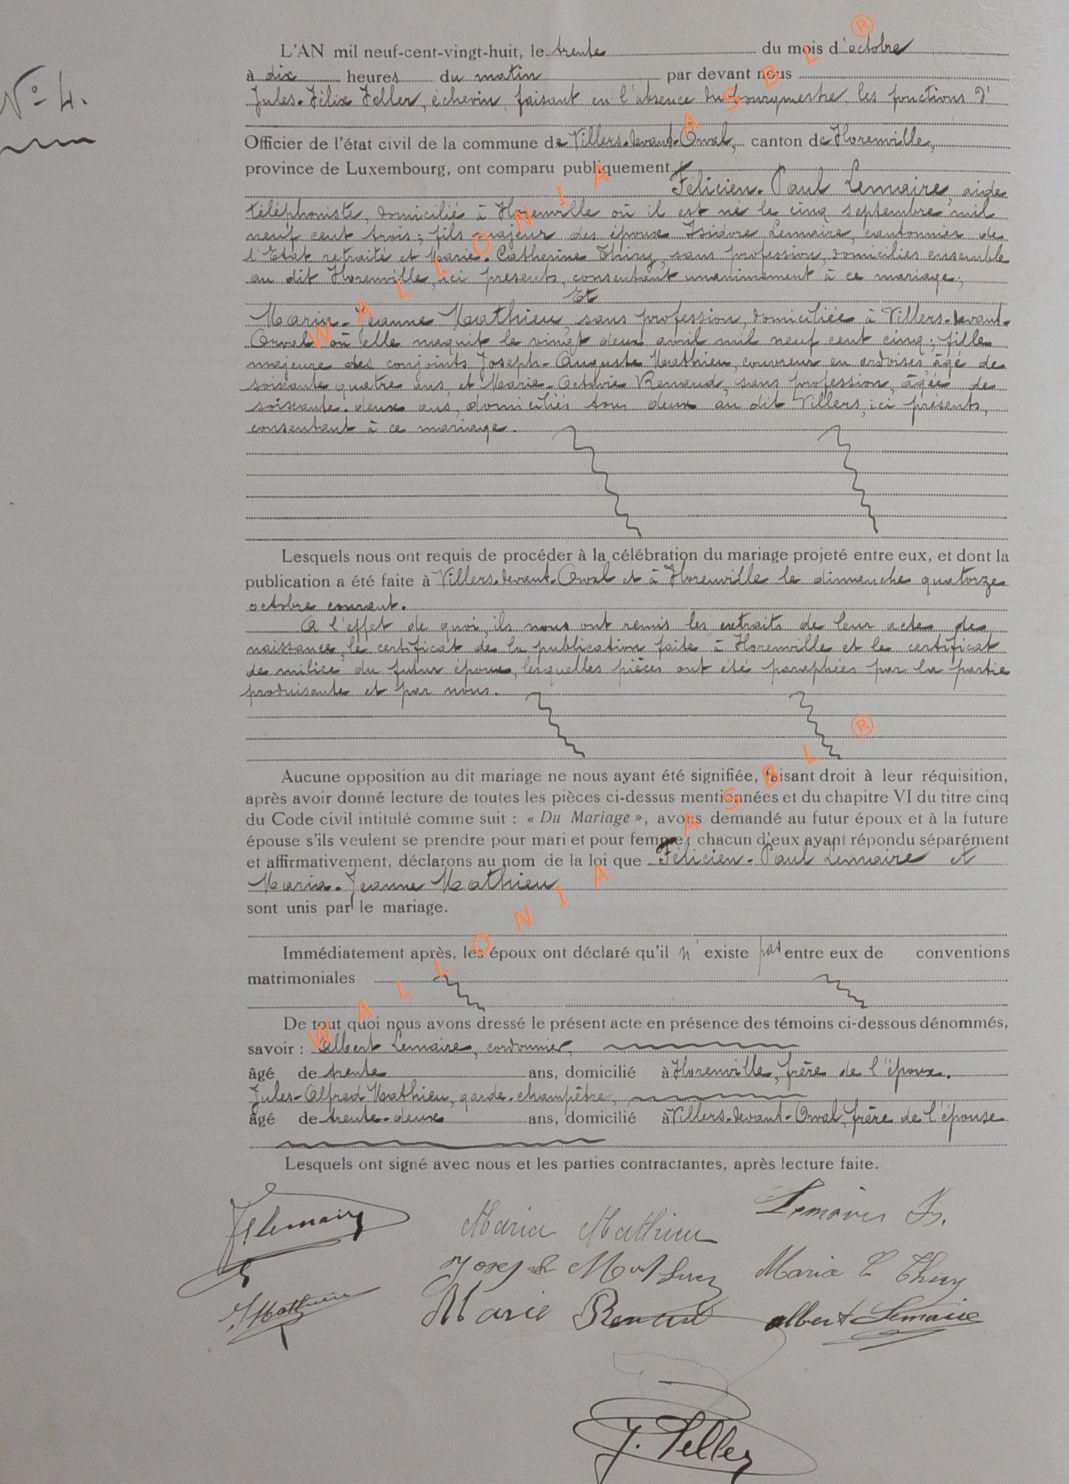 L'AN mil neuf-cent-vingt-huit, le trente du mois d'octobre
à dix heures du matin par devant nous
N° 4.
Jules-Félix Feller, échevin, faisant en l'absence du bourgmestre, les fonctions d'
Officier de l'état civil de la commune de Villers-devant-Orval, canton de Florenville,
province de Luxembourg, ont comparu publiquement
Félicien-Paul Lemaire, aide
téléphoniste, domicilié à Florenville où il est né le cinq septembre mil
neuf cent trois; fils majeur des époux Isidore Lemaire, cantonnier de
l'Etat retraité et Marie-Catherine Thiry, sans profession, domiciliés ensemble
au dit Florenville, ici présents, consentant unanimement à ce mariage;
Et
Maria-Jeanne Mathieu, sans profession, domiciliée à Villers-devant-
Orval où elle naquit le vingt deux avril mil neuf cent cinq; fille
majeure des conjoints Joseph-Auguste Mathieu, couvreur en ardoises âgé de
soixante quatre ans, et Marie-Octavie Renaud, sans profession, âgée de
soixante-deux ans, domiciliés tous deux au dit Villers, ici présents,
consentant à ce mariage.
Lesquels nous ont requis de procéder à la célébration du mariage projeté entre eux, et dont la
publication a été faite à Villers-devant-Orval et à Florenville le dimanche quatorze
octobre courant.
A l'effet de quoi, ils nous ont remis les extraits de leur acte de
naissance, le certificat de la publication faite à Florenville et le certificat
de milice du futur époux, lesquelles pièces ont été paraphées par la partie
produisante et par nous.
Aucune opposition au dit mariage ne nous ayant été signifiée, faisant droit à leur réquisition,
après avoir donné lecture de toutes les pièces ci-dessus mentionnées et du chapitre VI du titre cinq
du Code civil intitulé comme suit : « Du Mariage », avons demandé au futur époux et à la future
épouse s'ils veulent se prendre pour mari et pour femme; chacun d'eux ayant répondu séparément
et affirmativement, déclarons au nom de la loi que Félicien-Paul Lemaire et
Maria-Jeanne Mathieu
sont unis par le mariage.
Immédiatement après, les époux ont déclaré qu'il n'existe pas entre eux de conventions
matrimoniales
De tout quoi nous avons dressé le présent acte en présence des témoins ci-dessous dénommés,
savoir : Albert Lemaire, cordonnier,
âgé de trente ans, domicilié à Florenville, frère de l'époux.
Jules-Alfred Mathieu, garde-champêtre,
âgé de trente-deux ans, domicilié à Villers-devant-Orval, frère de l'épouse
Lesquels ont signé avec nous et les parties contractantes, après lecture faite.
F. Lemaire Maria Mathieu Lemaire Is.
Joseph Mathieu Maria C Thiry
J. Mathieu Marie Renaud albert Lemaire
J. Feller
WALLONIA ASBL ®
WALLONIA ASBL ®